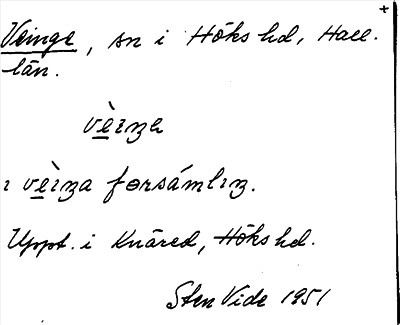 +
Veinge, sn i Höks hd, Hall.
län.
vèɪŋa
ɪ vèɪŋa fɵrsámlɪŋ.
Uppt. i Knäred, Höks hd.
Sten Vide 1951